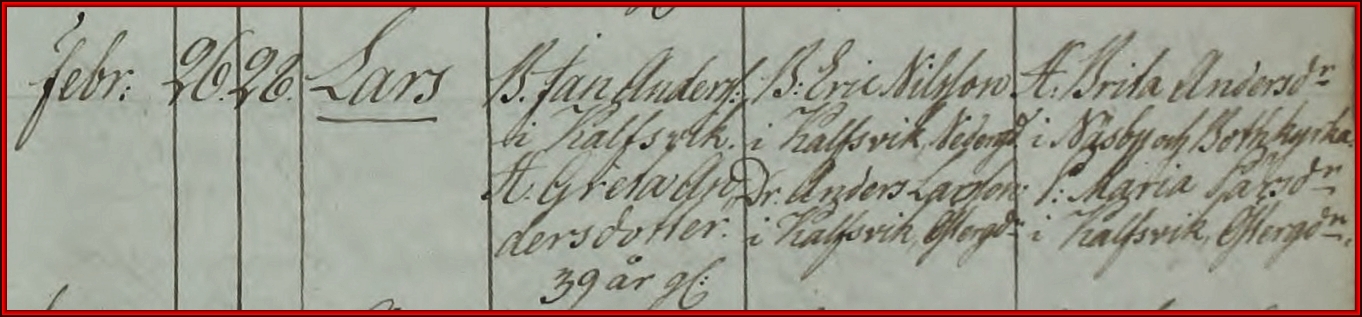 Febr. 26. 28. Lars
B. Jan Anders:
i Kalfsvik.
H. Greta An
dersdotter.
39 år gl:
B: Eric Nilsson
i Kalfsvik, Nedergd
Dr. Anders Larsson
i Kalfsvik, Östergdn
H. Brita Andersdr
i Näsby och Bothkyrka.
P: Maria Larsdr
i Kalfsvik, Östergdn.